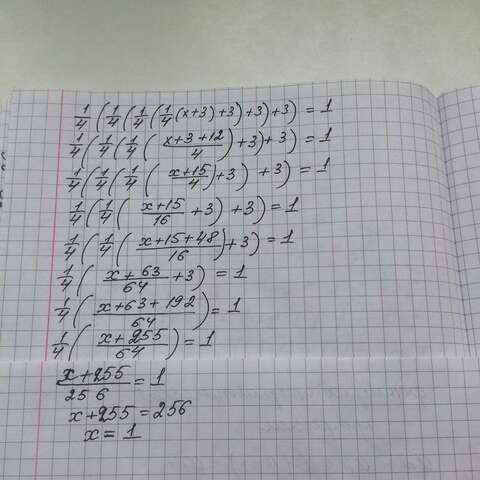 1/4(1/4(1/4(1/4(x+3)+3)+3)+3) = 1
1/4(1/4(1/4((x+3+12)/4)+3)+3) = 1
1/4(1/4(1/4((x+15)/4)+3)+3) = 1
1/4(1/4((x+15)/16+3)+3) = 1
1/4(1/4((x+15+48)/16)+3) = 1
1/4((x+63)/64+3) = 1
1/4((x+63+192)/64) = 1
1/4((x+255)/64) = 1
(x+255)/256 = 1
x+255 = 256
x = 1